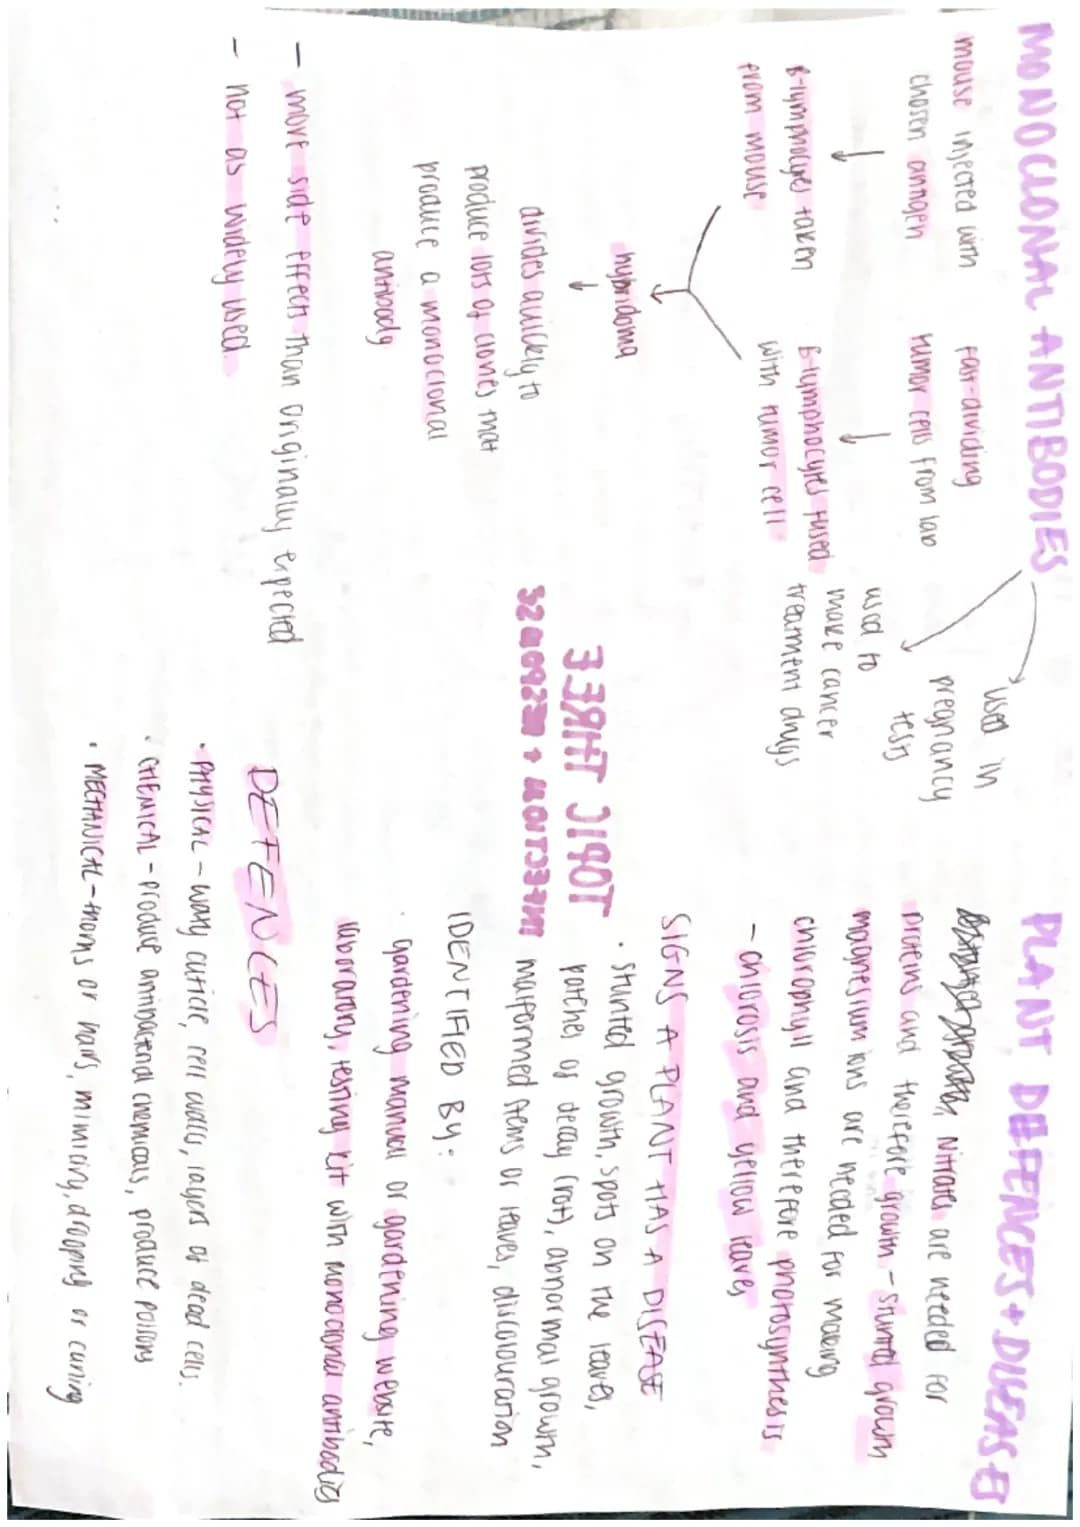 MONOCLONAL ANTIBODIES
mouse injected with
chosen antigen
B-lymphocytes taken
from mouse
fast-dividing
tumor cells from lab
B-lymphocytes fused
with tumor cell
used in
pregnancy
tests
used to
make cancer
treatment drugs
hybridoma
divides quickly to
produce lots of clones that
produce a monoclonal
antibody
- more side effects than originally expected
- not as widely used.
TOPIC THREE
INFECTION + RESPONSE
PLANT DEFENCES + DISEASES
Nitrates are needed for
proteins and therefore growth - stunted growth
magnesium ions are needed for making
chlorophyll and therefore photosynthesis
- chlorosis and yellow leaves
SIGNS A PLANT HAS A DISEASE
· stunted growth, spots on the leaves,
patches of decay (rot), abnormal growth,
malformed stems or leaves, discolouration
IDENTIFIED BY:
· gardening manual or gardening website,
laboratory, testing kit with monoclonal antibodies
DEFENCES
· PHYSICAL - waxy cuticle, cell walls, layers of dead cells.
· CHEMICAL - produce antibacterial chemicals, produce poisons
· MECHANICAL - thorns or hairs, mimicing, drooping or curling